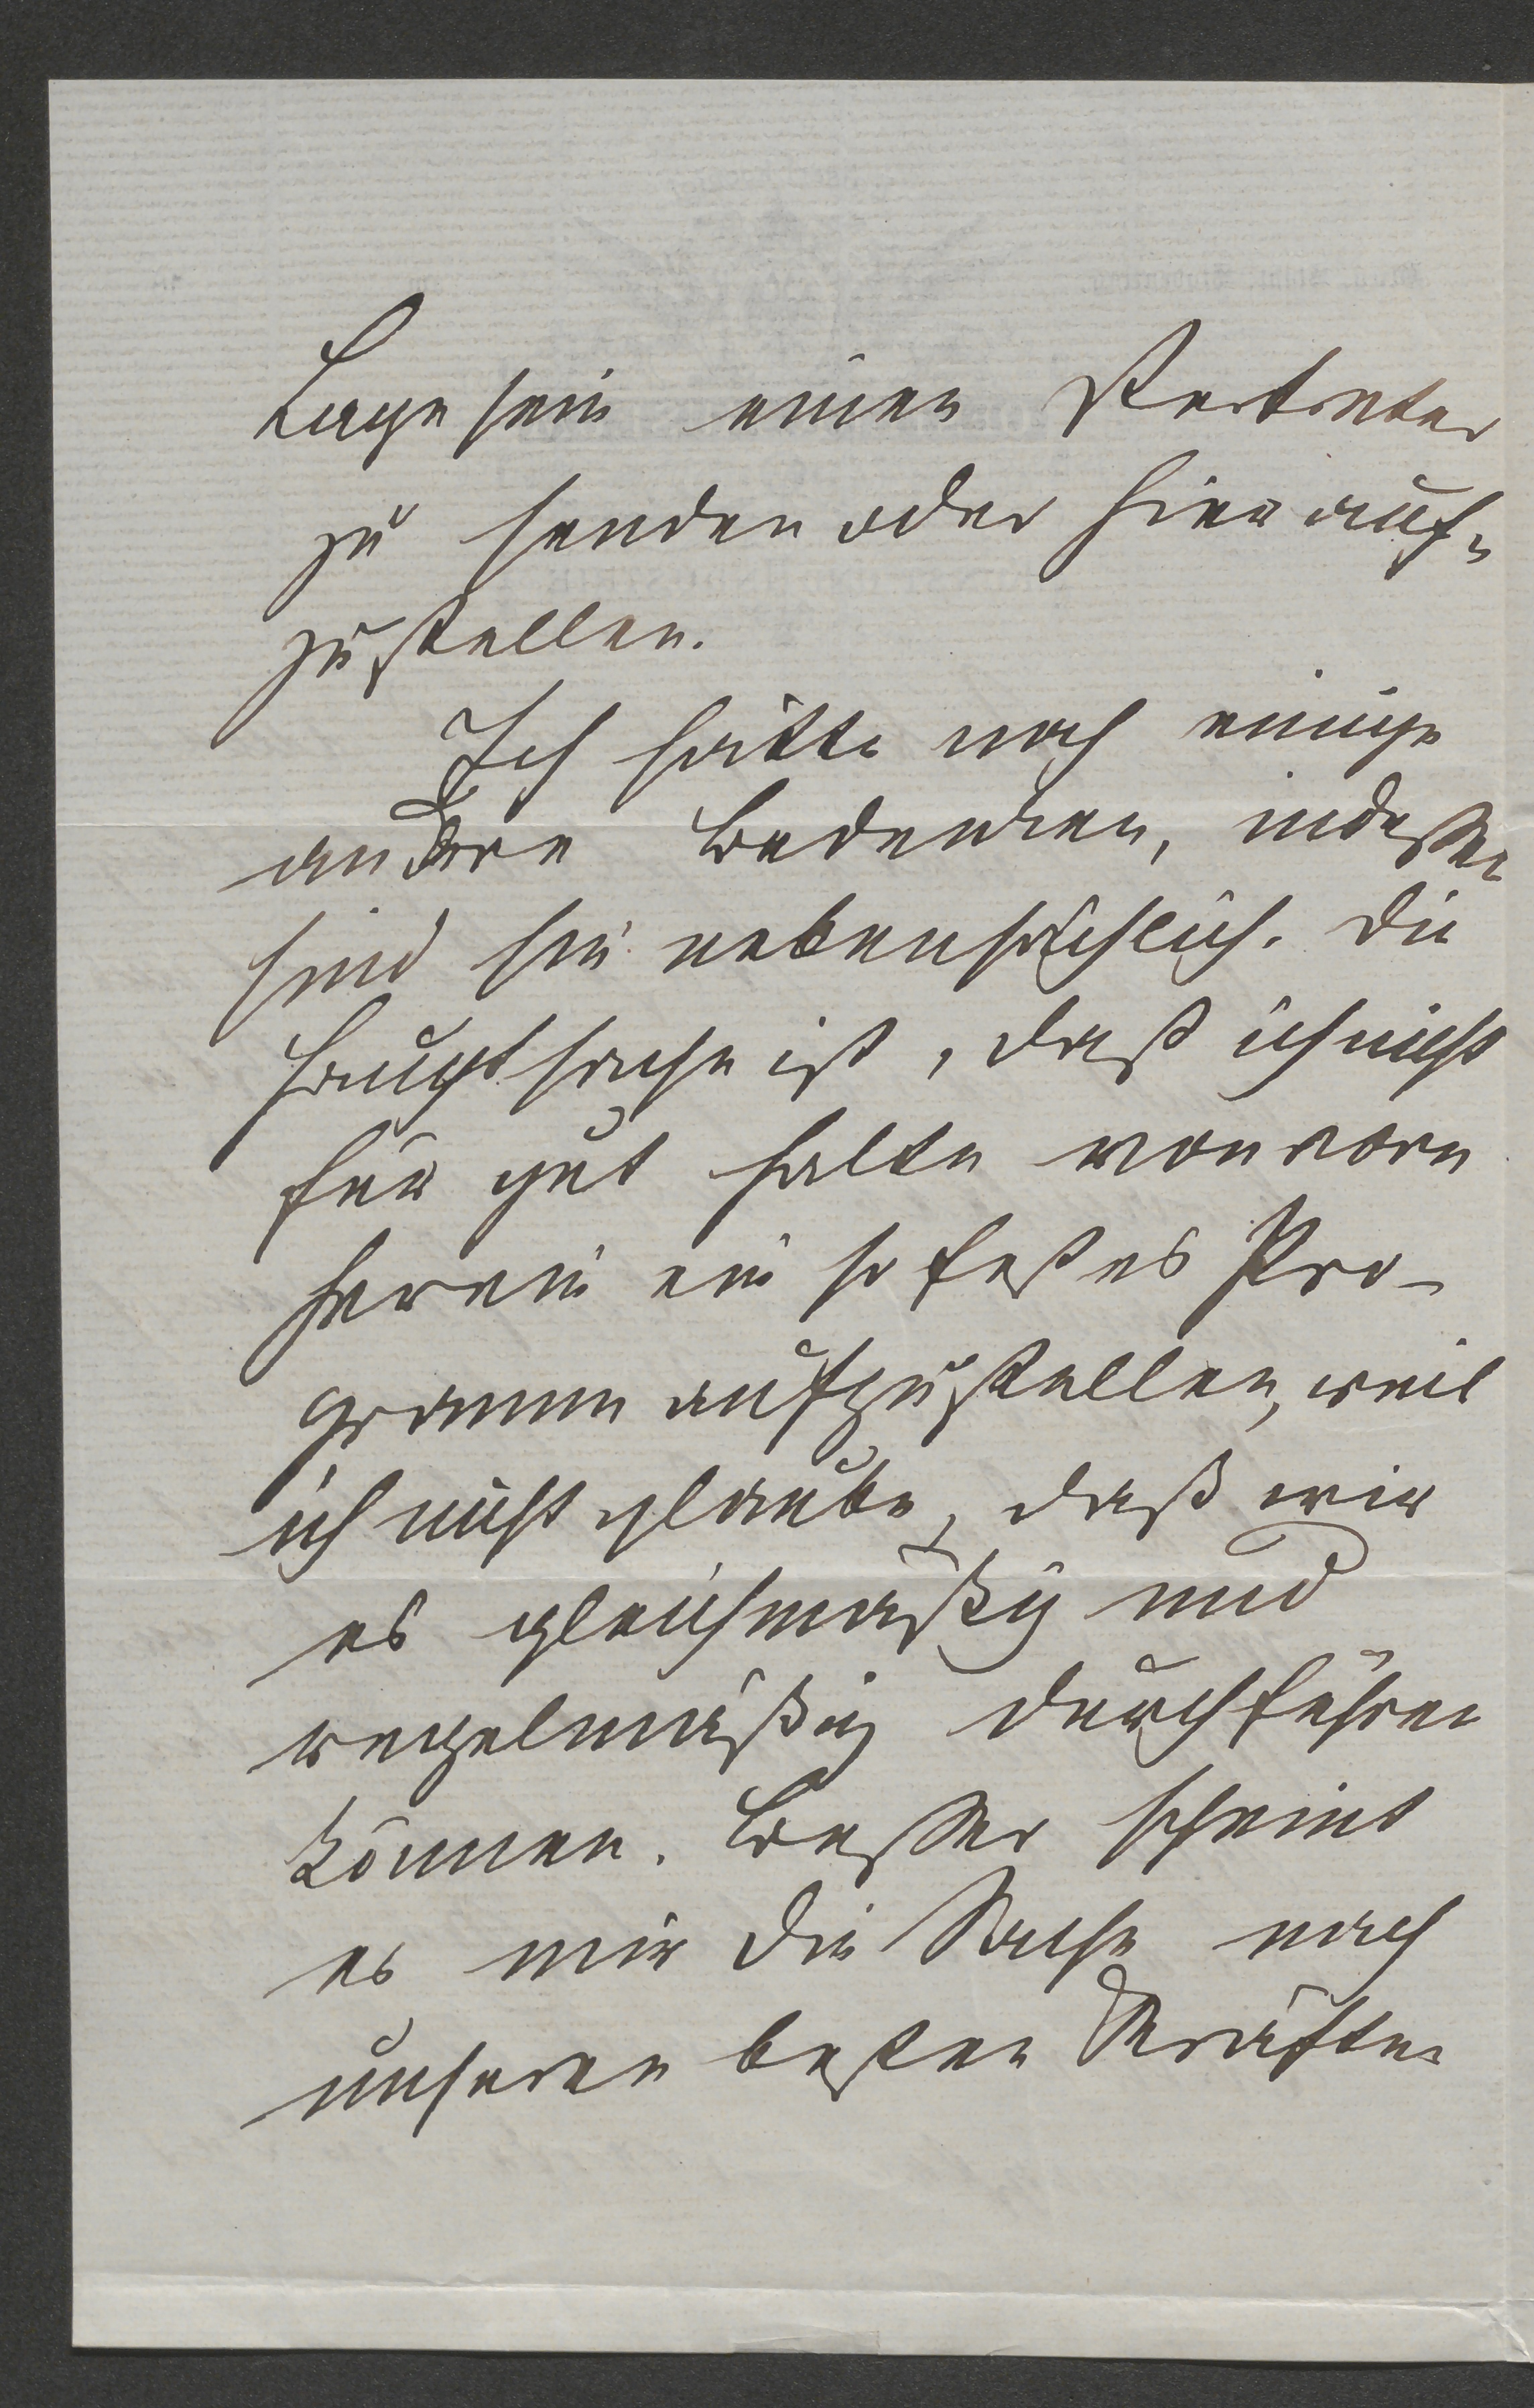 Lage sein einen Vertreter
zu senden oder hier auf-
zustellen.
Ich hätte noch einige
andere Bedenken, indessen
sind sie nebensächlich. Die
Hauptsache ist, daß ich nicht
für gut halte von vorn
herein ein so festes Pro-
gramm aufzustellen, weil
ich nicht glaube, daß wir
es gleichmäßig und
regelmäßig durchführen
können. Besser scheint
es mir die Sache nach
unseren besten Kräften